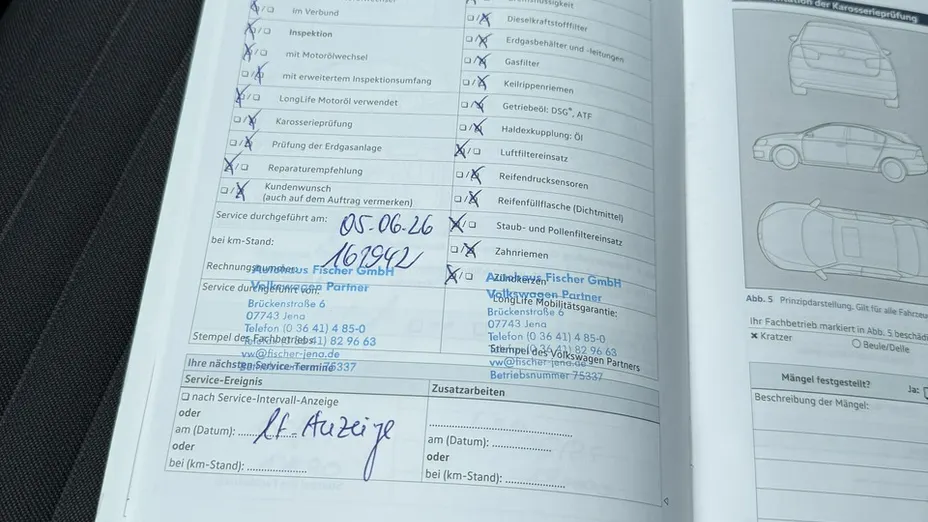 im Verbund
Inspektion
mit Motorölwechsel
mit erweitertem Inspektionsumfang
LongLife Motoröl verwendet
Karosserieprüfung
Prüfung der Erdgasanlage
Reparaturempfehlung
Kundenwunsch
(auch auf dem Auftrag vermerken)
Service durchgeführt am: 05.06.26
bei km-Stand: 162942
Rechnungsnummer:
Autohaus Fischer GmbH
Service durchgeführt von:
Volkswagen Partner
Brückenstraße 6
07743 Jena
Telefon (0 36 41) 4 85-0
Stempel des Fachbetriebs:
41) 82 96 63
vw@fischer-jena.de
Betriebsnummer 75337
Dieselkraftstofffilter
Erdgasbehälter und -leitungen
Gasfilter
Keilrippenriemen
Getriebeöl: DSG®, ATF
Haldexkupplung: Öl
Luftfiltereinsatz
Reifendrucksensoren
Reifenfüllflasche (Dichtmittel)
Staub- und Pollenfiltereinsatz
Zahnriemen
Zündkerzen
Autohaus Fischer GmbH
Volkswagen Partner
LongLife Mobilitätsgarantie:
Brückenstraße 6
07743 Jena
Telefon (0 36 41) 4 85-0
41) 82 96 63
Stempel des Volkswagen Partners
vw@fischer-jena.de
Betriebsnummer 75337
Ihre nächsten Service-Termine
Service-Ereignis
nach Service-Intervall-Anzeige
oder
am (Datum): lt. Anzeige
oder
bei (km-Stand):
Zusatzarbeiten
am (Datum):
oder
bei (km-Stand):
der Karosserieprüfung
Abb. 5 Prinzipdarstellung. Gilt für alle
Ihr Fachbetrieb markiert in Abb. 5
Kratzer
Beule/Delle
Mängel festgestellt? Ja:
Beschreibung der Mängel: